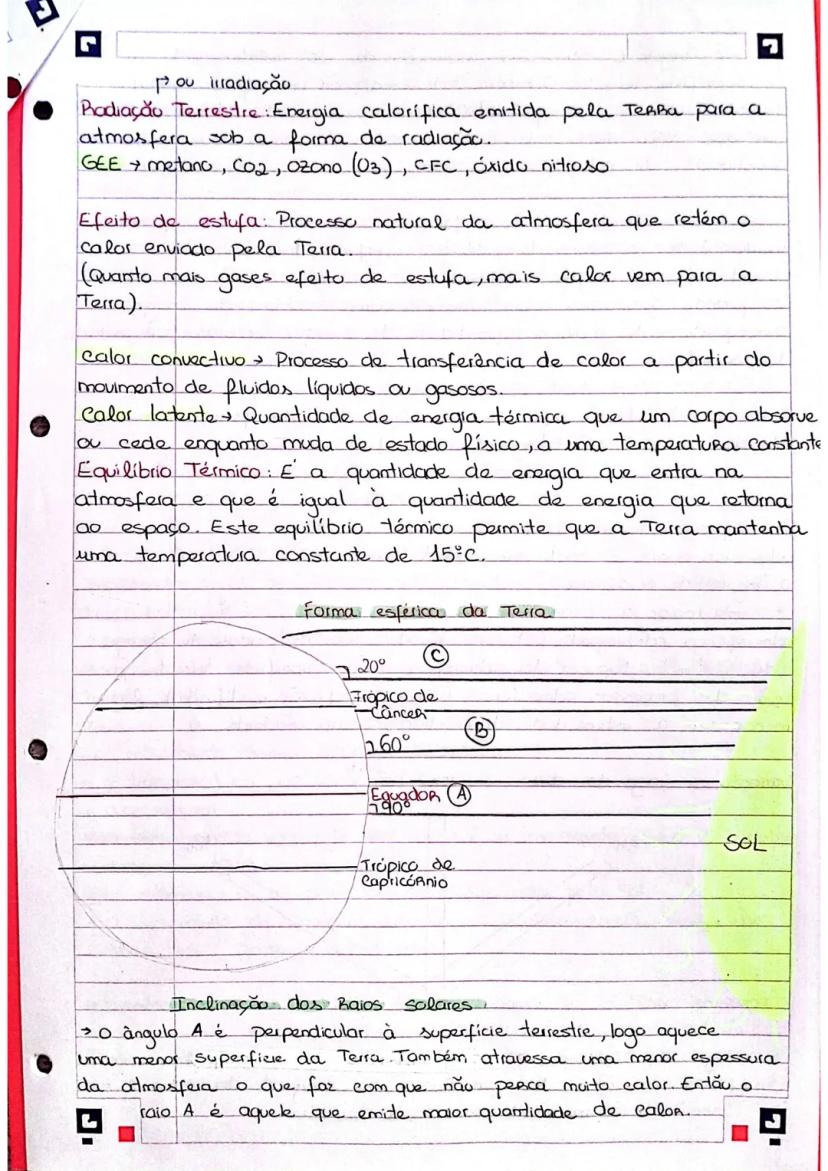 ↱ ou irradiação
Radiação Terrestre: Energia calorífica emitida pela Terra para a
atmosfera sob a forma de radiação.
GEE → metano, CO2, ozono (O3), CFC, óxido nitroso
Efeito de estufa: Processo natural da atmosfera que retém o
calor enviado pela Terra.
(Quanto mais gases efeito de estufa, mais calor vem para a
Terra).
Calor convectivo → Processo de transferância de calor a partir do
movimento de fluidos líquidos ou gasosos.
Calor latente → Quantidade de energia térmica que um corpo absorve
ou cede enquanto muda de estado físico, a uma temperatura constante
Equilíbrio Térmico: É a quantidade de energia que entra na
atmosfera e que é igual à quantidade de energia que retorna
ao espaço. Este equilíbrio térmico permite que a Terra mantenha
uma temperatura constante de 15°C.
Forma esférica da Terra
20° C
Trópico de
Câncer
60° B
Equador A
90°
SOL
Trópico de
Capricórnio
Inclinação dos Raios solares
→ O ângulo A é perpendicular à superfície terrestre, logo aquece
uma menor superfície da Terra. Também atravessa uma menor espessura
da atmosfera o que faz com que não perca muito calor. Então o
raio A é aquele que emite maior quantidade de calor.